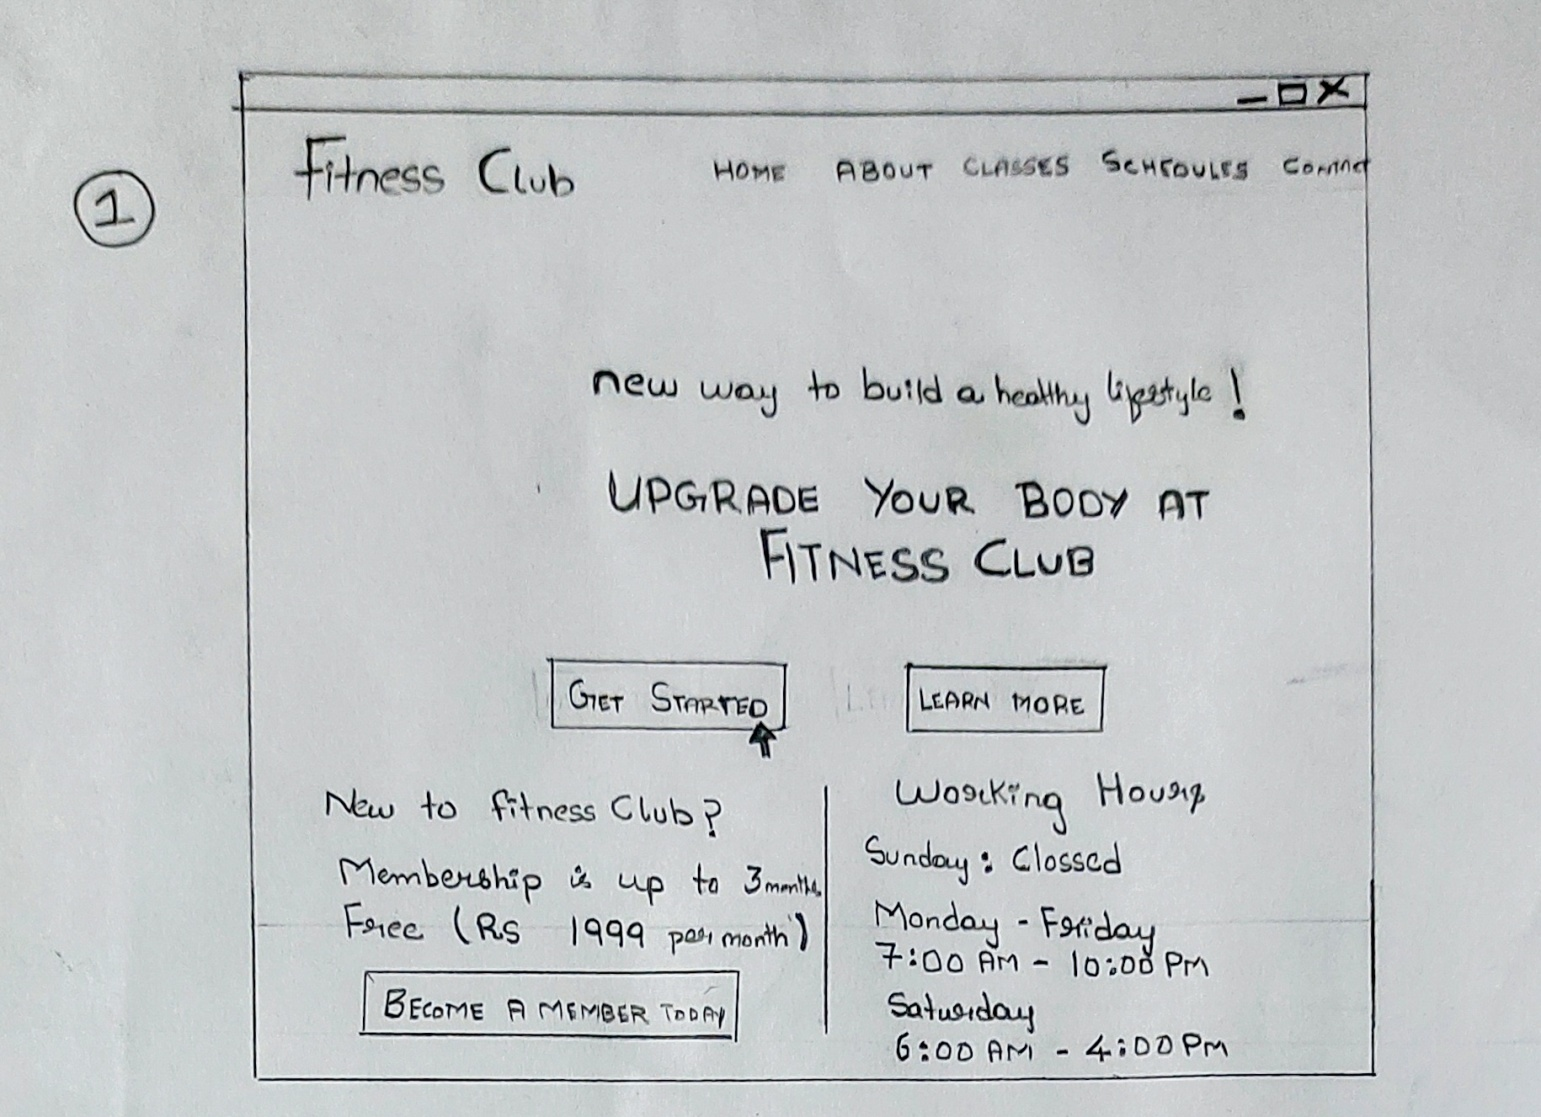 1
Fitness Club HOME ABOUT CLASSES SCHEDULES Contact
new way to build a healthy lifestyle!
UPGRADE YOUR BODY AT
FITNESS CLUB
GET STARTED LEARN MORE
New to fitness Club?
Membership is up to 3 months
Free (RS 1999 per month)
BECOME A MEMBER TODAY
Working Hours
Sunday: Clossed
Monday - Friday
7:00 AM - 10:00 PM
Saturday
6:00 AM - 4:00 PM